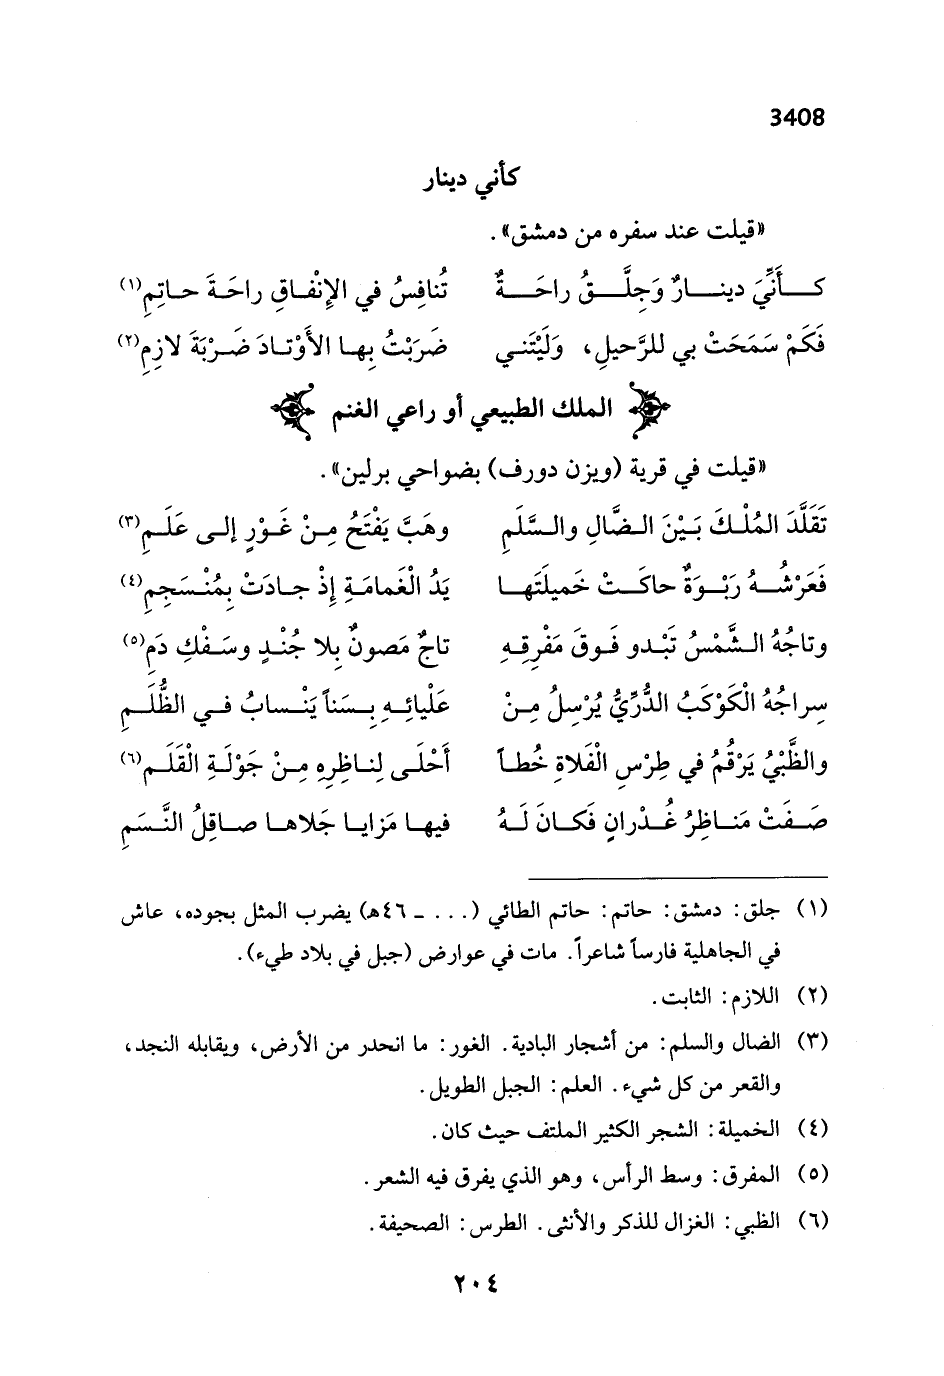 3408
كأني دينار
«قيلت عند سفره من دمشق».
كَأَنِّيَ دينارٌ وَجِلَّقُ راحَةٌ تُنافِسُ في الإِنْفاقِ راحَةَ حاتِمِ(١)
فَكَمْ سَمَحَتْ بي للرَّحيلِ، وَلَيْتَني ضَرَبْتُ بِها الأَوْتادَ ضَرْبَةَ لازِمِ(٢)
الملك الطبيعي أو راعي الغنم
«قيلت في قرية (ويزن دورف) بضواحي برلين».
تَقَلَّدَ المُلْكَ بَيْنَ الضَّالِ والسَّلَمِ وهَبَّ يَفْتَحُ مِنْ غَوْرٍ إلى عَلَمِ(٣)
فَعَرْشُهُ رَبْوَةٌ حاكَتْ خَميلَتَها يَدُ الْغَمامَةِ إذْ جادَتْ بِمُنْسَجِمِ(٤)
وتاجُهُ الشَّمْسُ تَبْدو فَوقَ مَفْرِقِهِ تاجٌ مَصونٌ بِلا جُنْدٍ وسَفْكِ دَمِ(٥)
سِراجُهُ الْكَوْكَبُ الدُّرِّيُّ يُرْسِلُ مِنْ عَلْيائِهِ بِسَناً يَنْسابُ في الظُّلَمِ
والظَّبْيُ يَرْقُمُ في طِرْسِ الْفَلاةِ خُطاً أَحْلَى لِناظِرِهِ مِنْ جَوْلَةِ الْقَلَمِ(٦)
صَفَتْ مَناظِرُ غُدْرانٍ فَكانَ لَهُ فيها مَزايا جَلاها صاقِلُ النَّسَمِ
(١) جلق: دمشق: حاتم: حاتم الطائي (... ـ ٤٦هـ) يضرب المثل بجوده، عاش
في الجاهلية فارساً شاعراً. مات في عوارض (جبل في بلاد طيء).
(٢) اللازم: الثابت.
(٣) الضال والسلم: من أشجار البادية. الغور: ما انحدر من الأرض، ويقابله النجد،
والقعر من كل شيء. العلم: الجبل الطويل.
(٤) الخميلة: الشجر الكثير الملتف حيث كان.
(٥) المفرق: وسط الرأس، وهو الذي يفرق فيه الشعر.
(٦) الظبي: الغزال للذكر والأنثى. الطرس: الصحيفة.
٢٠٤